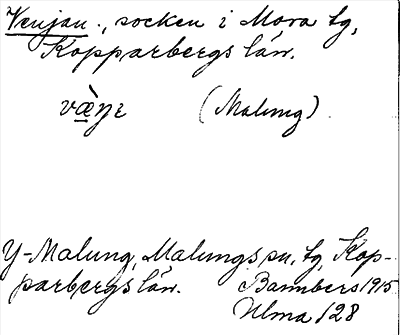 Venjan., socken i Mora tg,
Kopparbergs län.
væ̀ŋɛ (Malung).
Y-Malung, Malungs sn, tg, Kop-
parbergs län. Bannbers 1915
Ulma 128